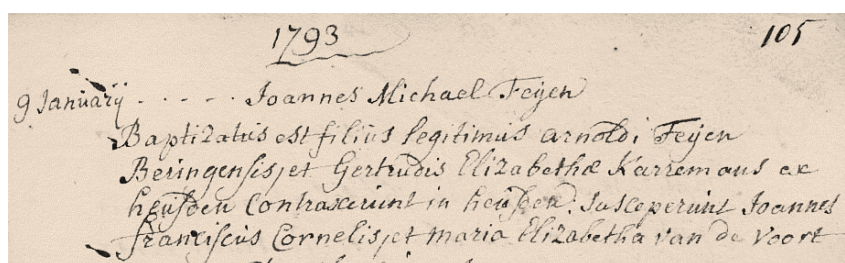 1793 105
9 Januarij . . . . . Joannes Michael Feyen
Baptizatus est filius legitimus arnoldi Feyen
Beringensis, et Gertrudis Elizabethæ Karremans ex
heusden contraxerunt in heusden. Susceperunt Joannes
franciscus Cornelis, et maria Elizabetha van de voort